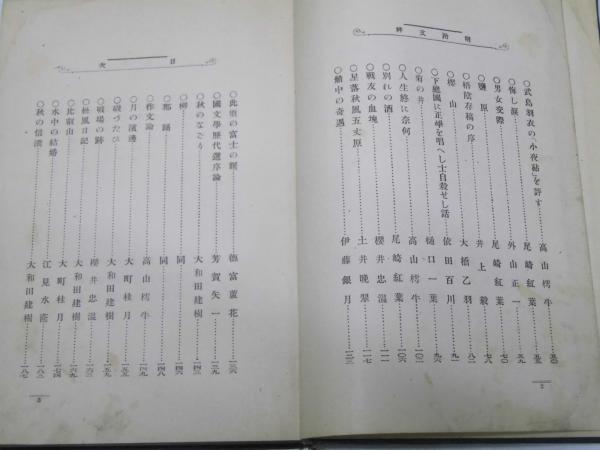 明治文粹
○武島羽衣の「小夜砧」を評す……高山樗牛……五〇
○悔し涙……尾崎紅葉……五五
○男女交際……外山正一……五九
○鹽原……尾崎紅葉……七〇
○梧陰存稿の序……井上毅……七八
○樅山……大橋乙羽……八二
○下總國に正學を唱へし士自殺せし話……依田百川……九一
○菊の井……樋口一葉……九八
○人生終に奈何……高山樗牛……一〇二
○別れの酒……尾崎紅葉……一〇六
○戰友の血塊……櫻井忠溫……一一一
○星落秋風五丈原……土井晩翠……一一七
○鯖中の奇遇……伊藤銀月……一二三
2
目次
○此頃の富士の曙……德富蘆花……一三六
○國文學歷代選序論……芳賀矢一……一三九
○秋のなごり……大和田建樹……一四三
○柳……同……一四六
○鄰……同……一四八
○作文論……高山樗牛……一四九
○月の濱邊……大町桂月……一五三
○磯づたひ……大和田建樹……一五五
○戰場の跡……櫻井忠溫……一六三
○秋風日記……大和田建樹……一六六
○比叡山……大町桂月……一七四
○水中の結婚……江見水蔭……一八三
○秋の信濃……大和田建樹……一八七
3